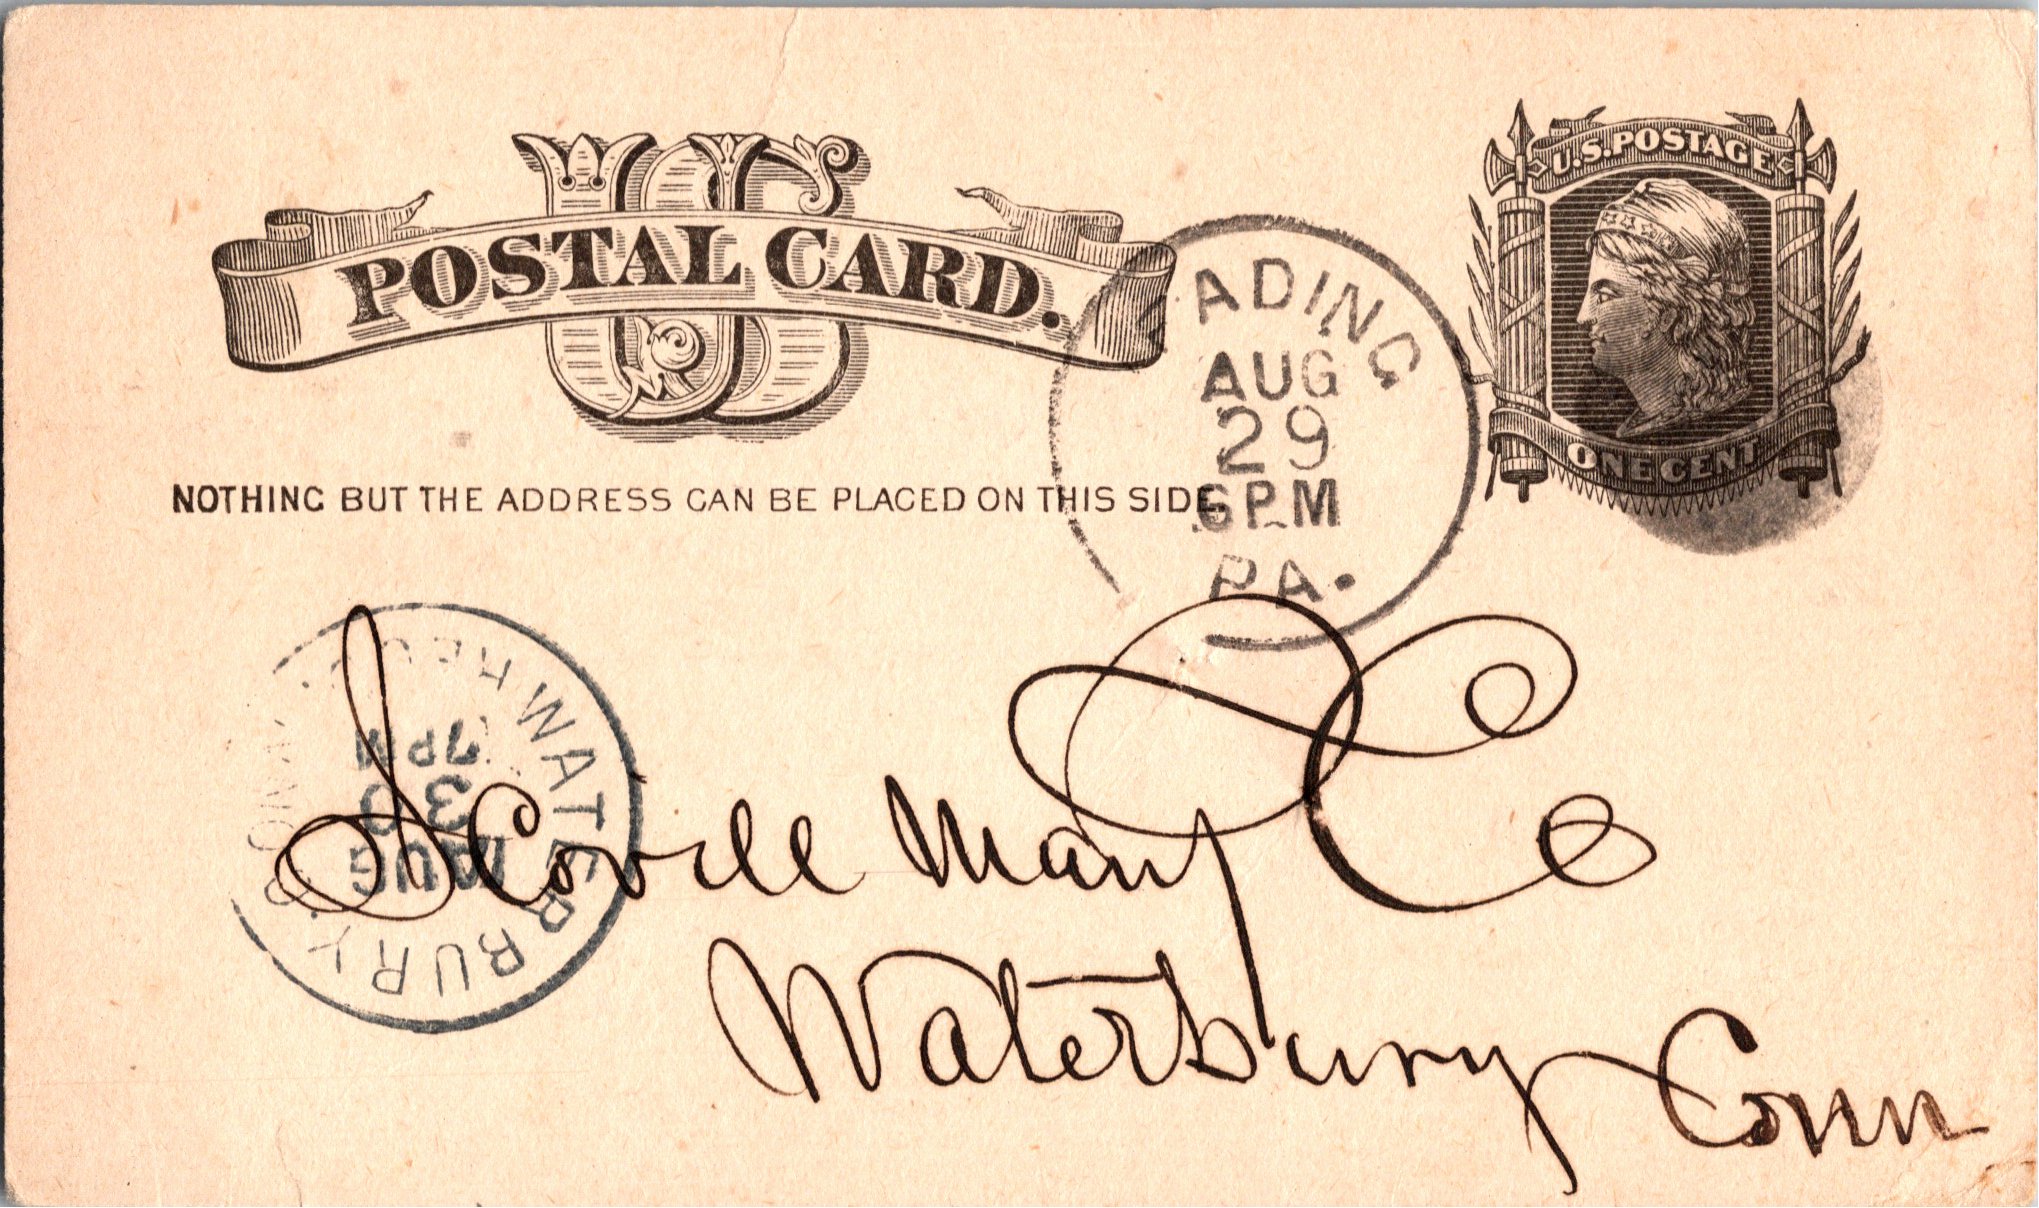 US
POSTAL CARD.
U.S. POSTAGE
ONE CENT
NOTHING BUT THE ADDRESS CAN BE PLACED ON THIS SIDE
READING
AUG
29
6PM
PA.
WATERBURY
REC'D.
AUG
30
7PM
Scovill Manf Co
Waterbury Conn